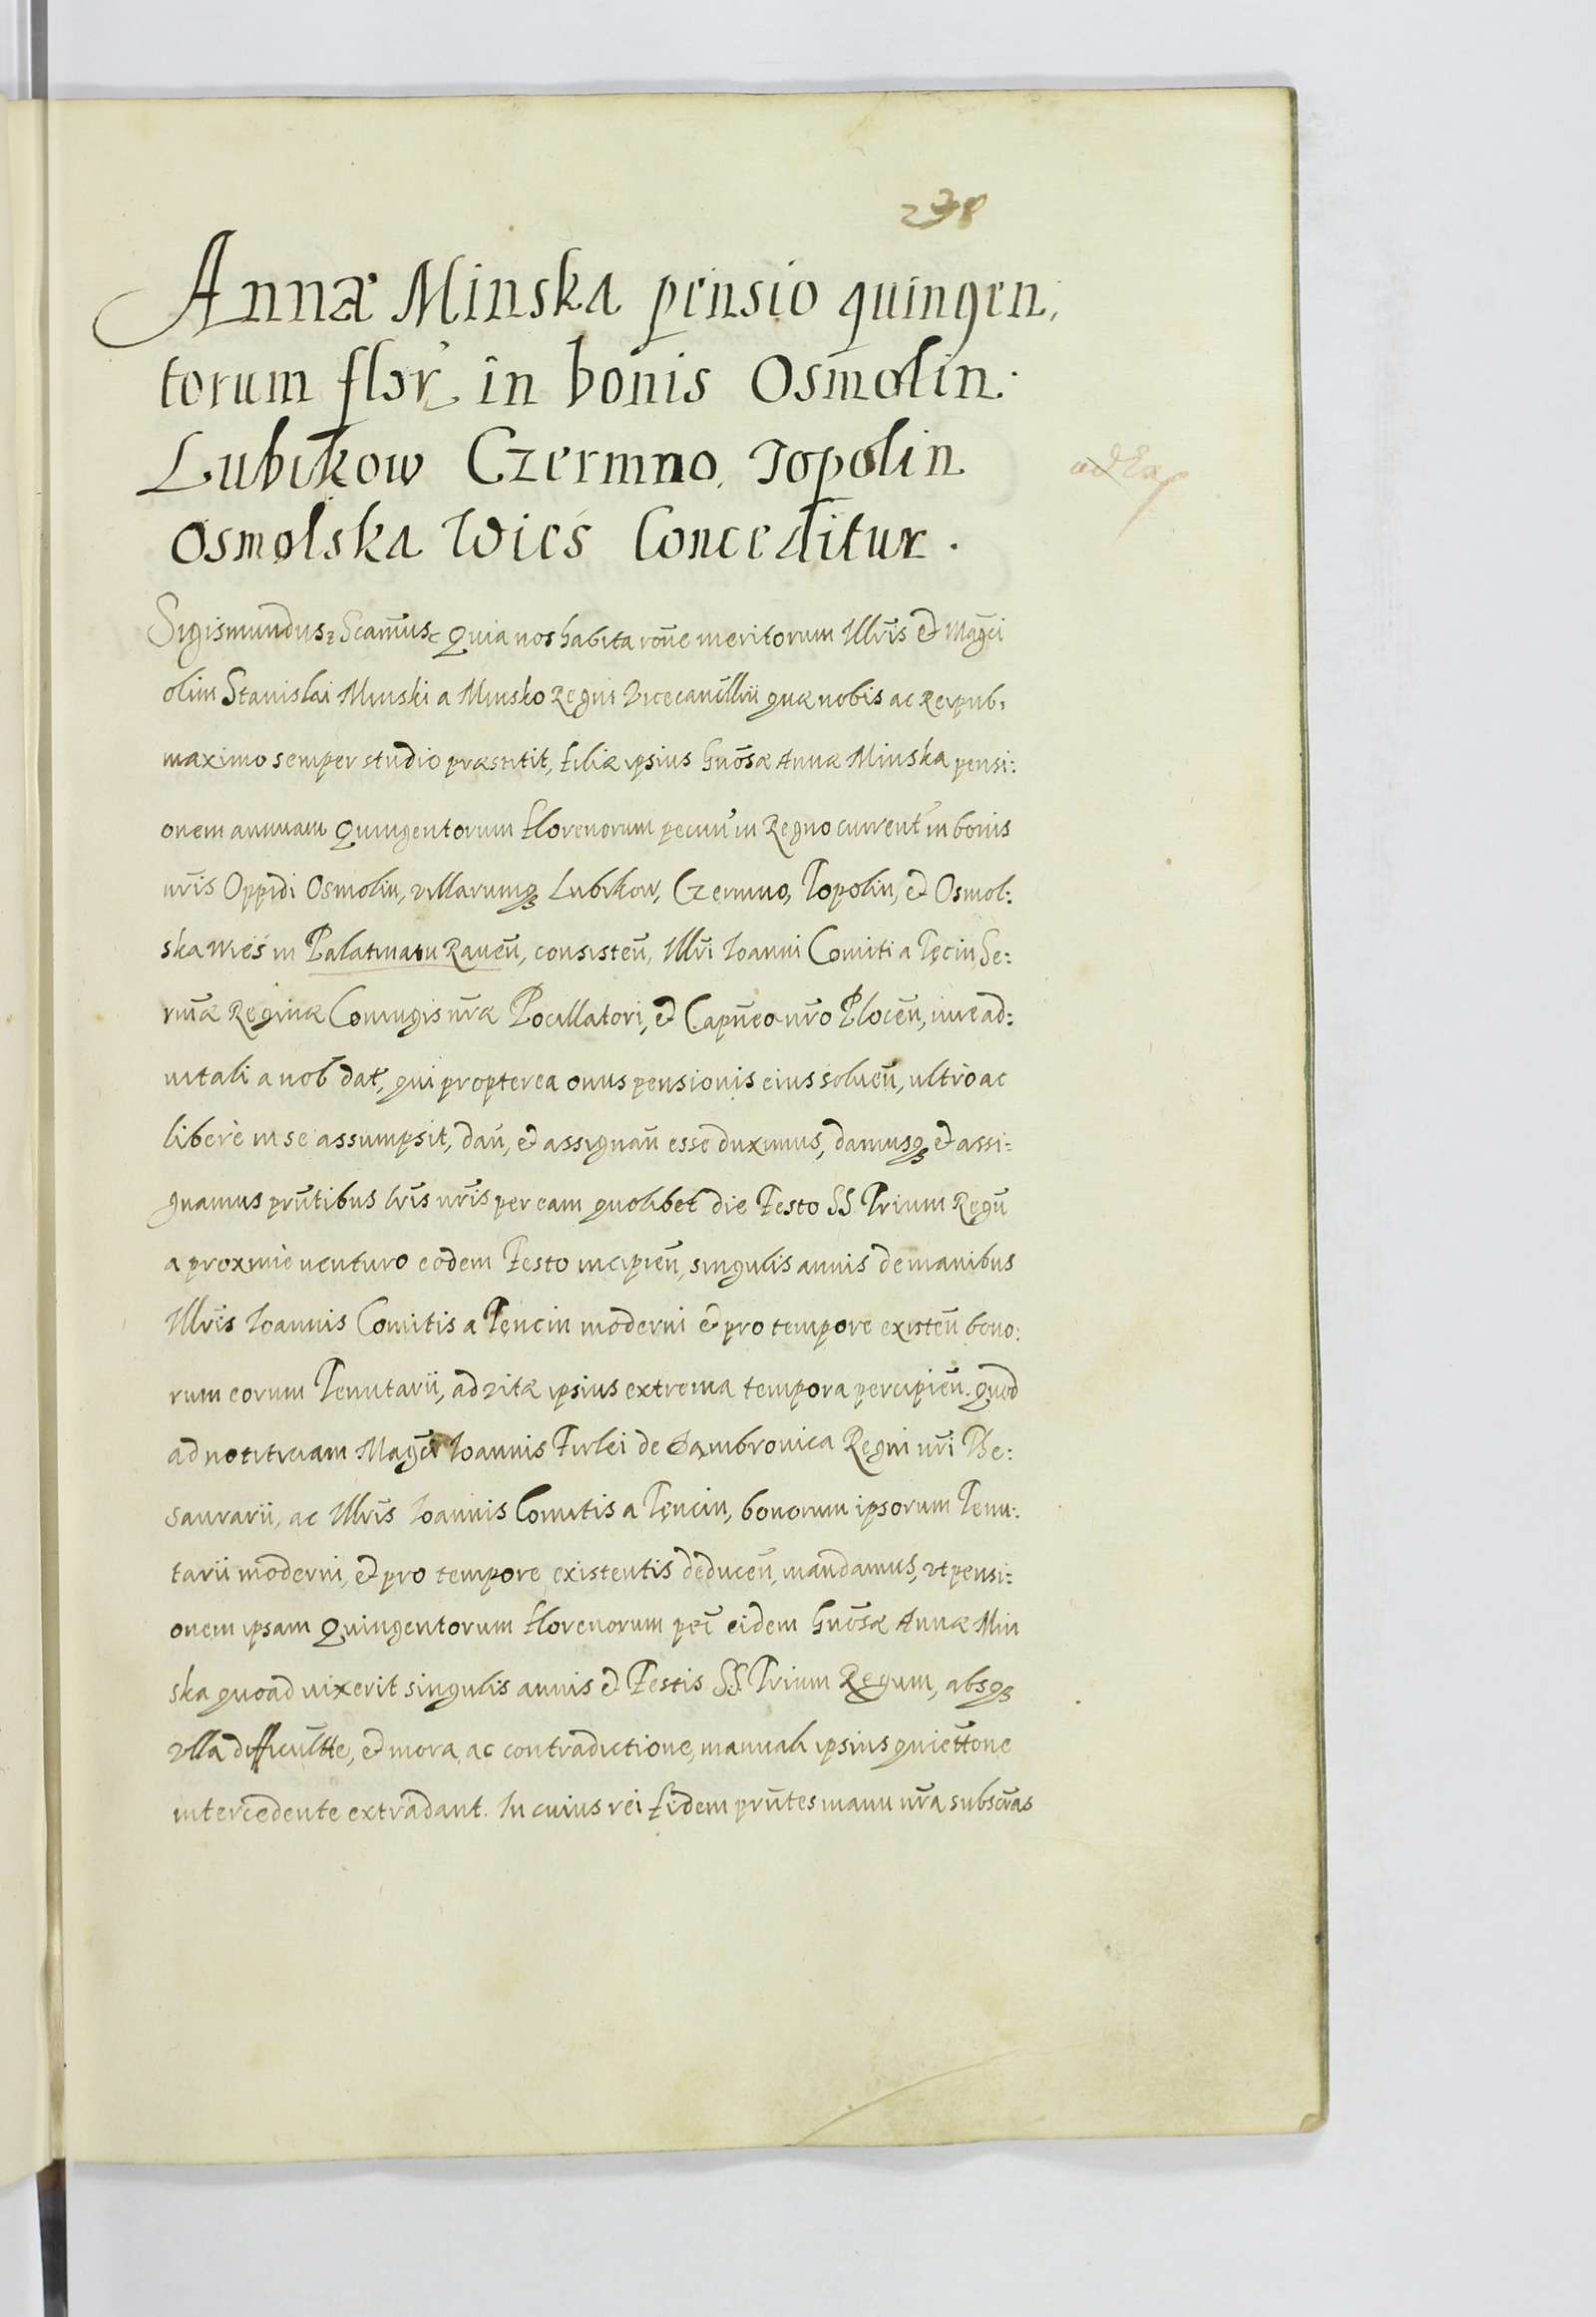 238
Annæ Minska pensio quingen,
torum flor' in bonis Osmolin.
Lubikow Czermno, Topolin
Osmolska Wieś Conceditur.
Sigismundus, Scam̄us, Quia nos habita rōne meritorum Illr̄is et Maḡci
olim Stanislai Minski a Minsko Regni Vicecancȳllrii quæ nobis ac Reipub,
maximo semper studio præstitit, filiæ ipsius Gnōsæ Annæ Minska pensi:
onem annuam Quingentorum florenorum pecun' in Regno current' in bonis
nr̄is Oppidi Osmolin, villarumq3 Lubikow, Czermno, Topolin, et Osmol:
ska wieś in Palatinatu Raven̄, consisten̄, Illr̄i Ioanni Comiti a Tęcin, Se:
rm̄æ Reginæ Coniugis nr̄æ Pocillatori, et Capn̄eo nr̄o Plocen̄, iure ad:
vitali a nob dat', qui propterea onus pensionis eius soluen̄, ultrò ac
liberè in se assumpsit, dan̄, et assignan̄ esse duximus, damusq3 et assi:
gnamus prn̄tibus lr̄is nr̄is per eam quolibet die Festo SS. Trium Regū
a proximè venturo eodem Festo incipien̄, singulis annis de manibus
Illr̄is Ioannis Comitis a Tęncin moderni et pro tempore existen̄ bono:
rum eorum Tenutarii, ad vitæ ipsius extrema tempora percipien̄. Quod
ad notitiam Maḡci Ioannis Firlei de Dąmbrovica Regni nr̄i The:
saurarii, ac Illr̄is Ioannis Comitis a Tęncin, bonorum ipsorum Tenu:
tarii moderni, et pro tempore existentis deducen̄, mandamus, vt pensi:
onem ipsam Quingentorum florenorum pēī eidem Gnōsæ Annæ Min
ska quoad vixerit singulis annis et Festis SS. Trium Regum, absq3
vlla difficūltte, et mora, ac contradictione, manuali ipsius quiēttone
intercedente extradant. In cuius rei fidem prn̄tes manu nr̄a subscr̄as